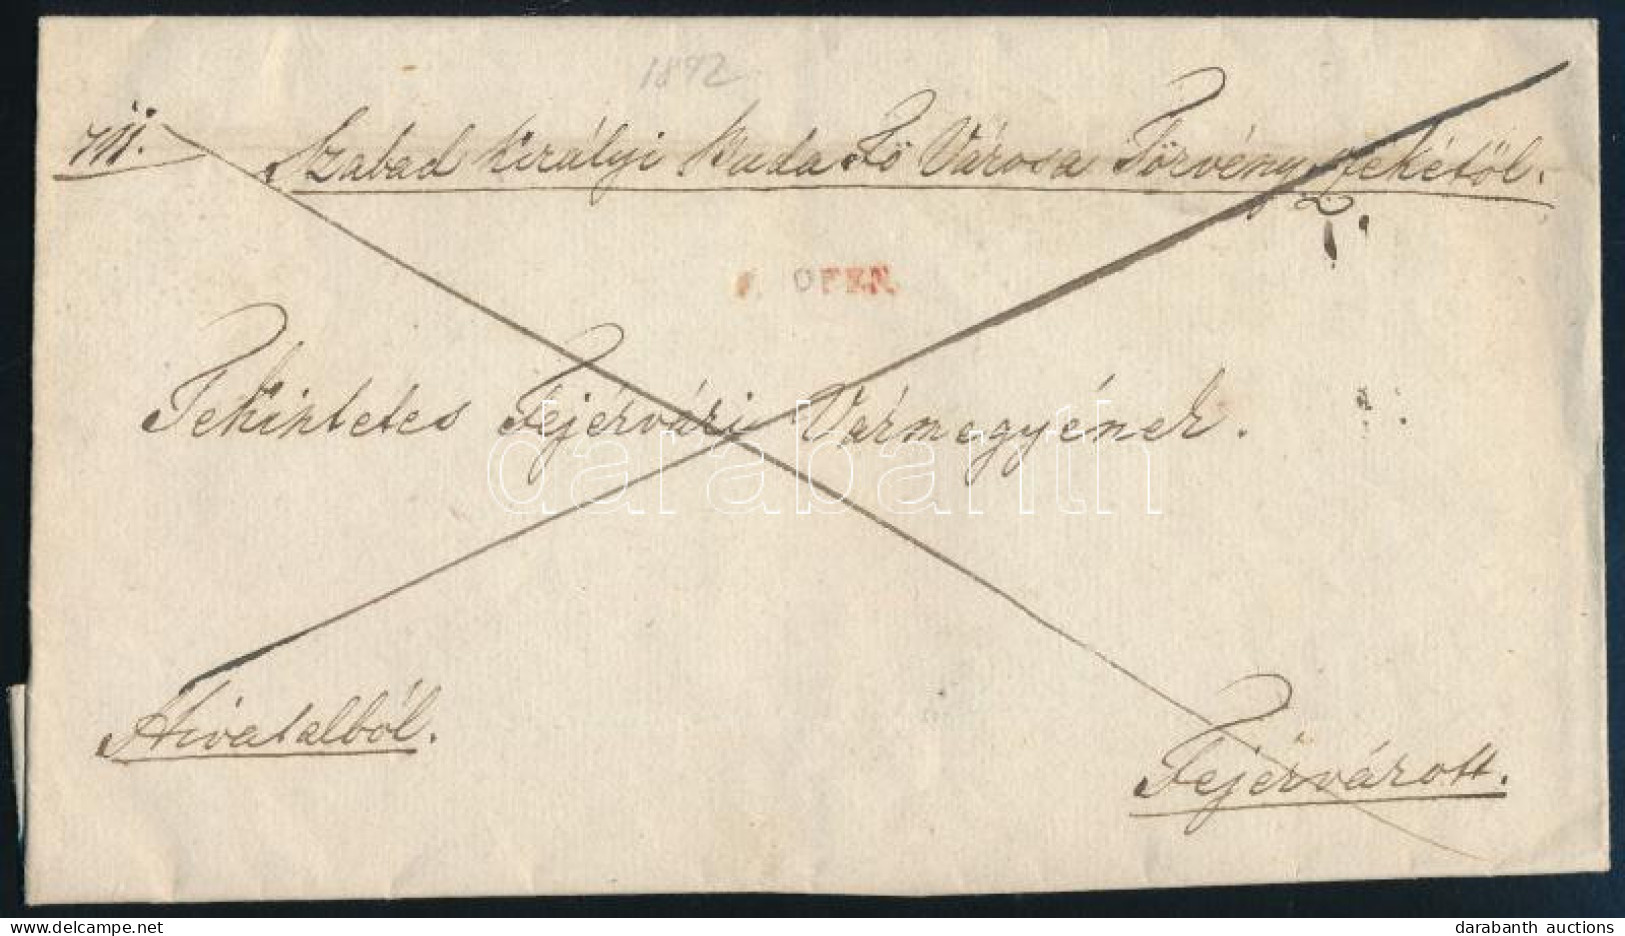 1842
Szabad Királyi Buda Fő Városa Törvényszékétől.
OFEN
Tekintetes Fejérvári Vármegyének.
darabanth
Hivatalból.
Fejérvárott.
darabanth auctions